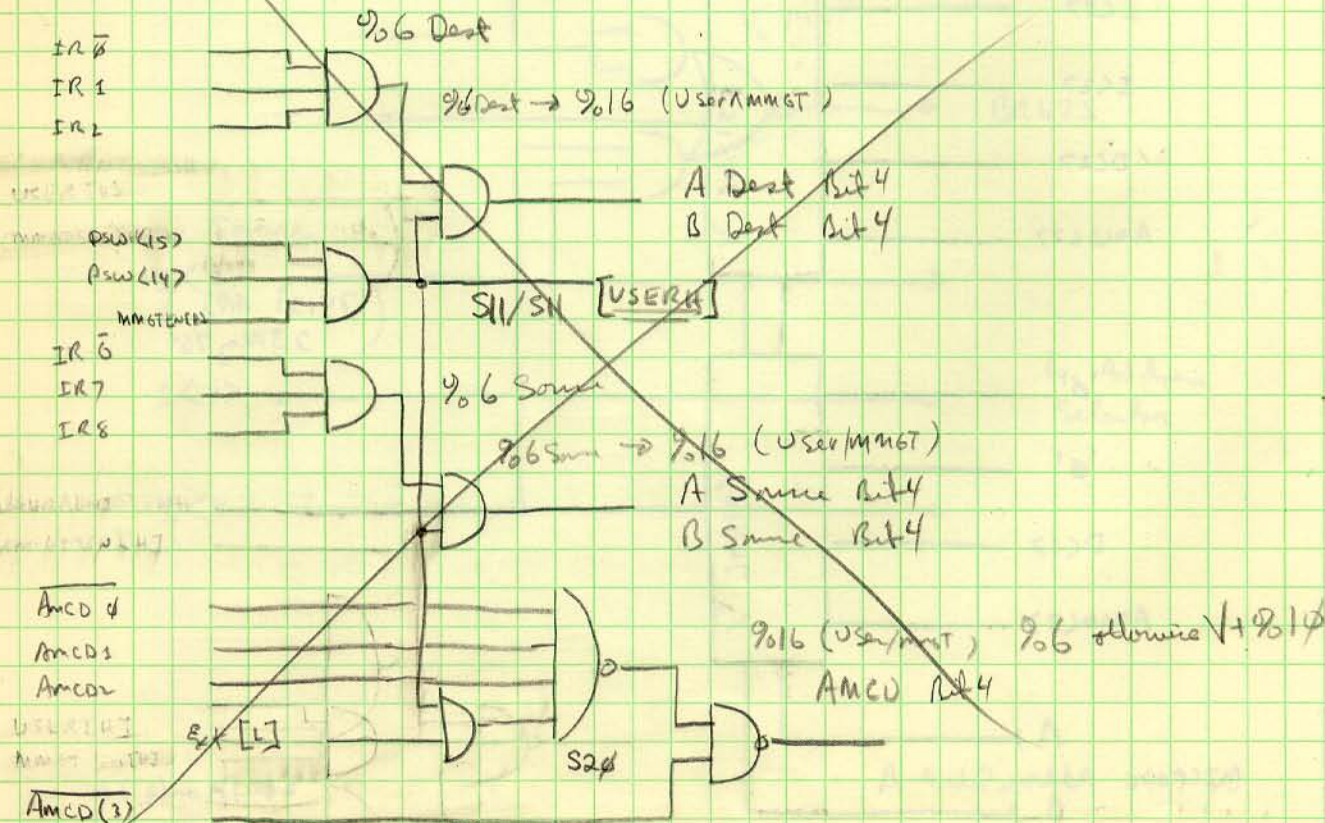 %6 Dest
IR 0̅
IR 1
IR 2
%6 Dest → %16 (User∧MMGT)
A Dest Bit 4
B Dest Bit 4
PSW<15>
PSW<14>
MMGTEN[H]
S11/S11 [USERH]
IR 6̅
IR7
IR8
%6 Source
%6 Source → %16 (User/MMGT)
A Source Bit 4
B Source Bit 4
A̅M̅C̅D̅ 0̅
AMCD1
AMCD2
[L]
S20
%16 (User/MMGT) %6 otherwise V+%10
AMCD Bit 4
A̅M̅C̅D̅(̅3̅)̅